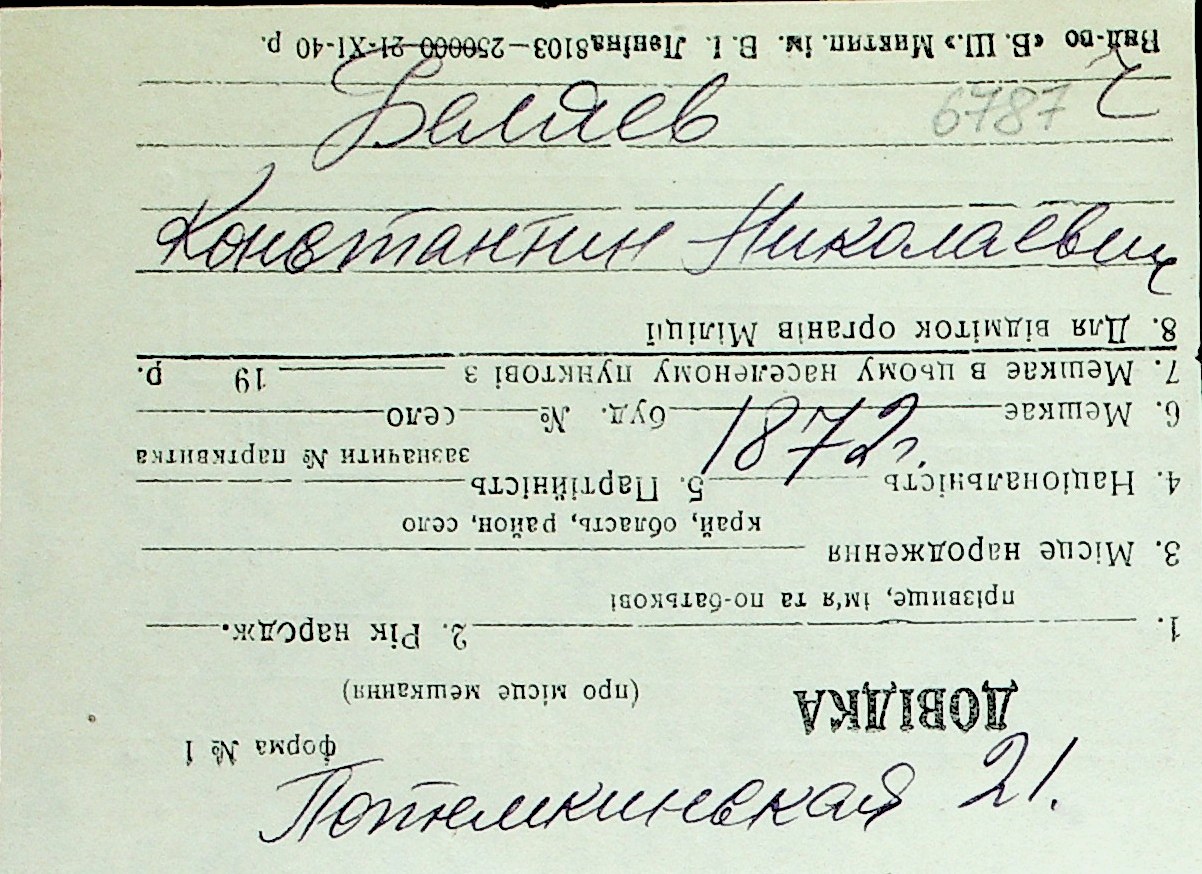 Беляев 6787
Константин Николаевич
1872г.
Потемкинская 21.
форма № 1
ДОВІДКА (про місце мешкання)
1. 2. Рік народж.
прізвище, ім'я та по-батькові
3. Місце народження
край, область, район, село
4. Національність 5. Партійність
зазначити № партквитка
6. Мешкає буд. № село
7. Мешкає в цьому населеному пунктові з 19 р.
8. Для відміток органів Міліції
Вид-во «Б. Ш.» ім. В. І. Леніна 8103—250000 21-XI-40 р.